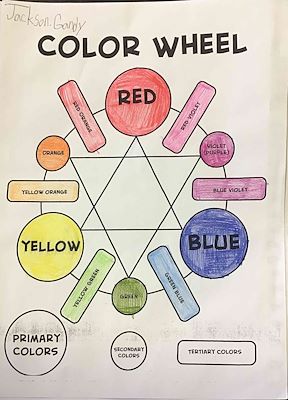 Jackson.Gandy
COLOR WHEEL
RED
RED ORANGE
RED VIOLET
ORANGE
VIOLET
(PURPLE)
YELLOW ORANGE
BLUE VIOLET
YELLOW
BLUE
YELLOW GREEN
GREEN
GREEN BLUE
PRIMARY
COLORS
SECONDARY
COLORS
TERTIARY COLORS